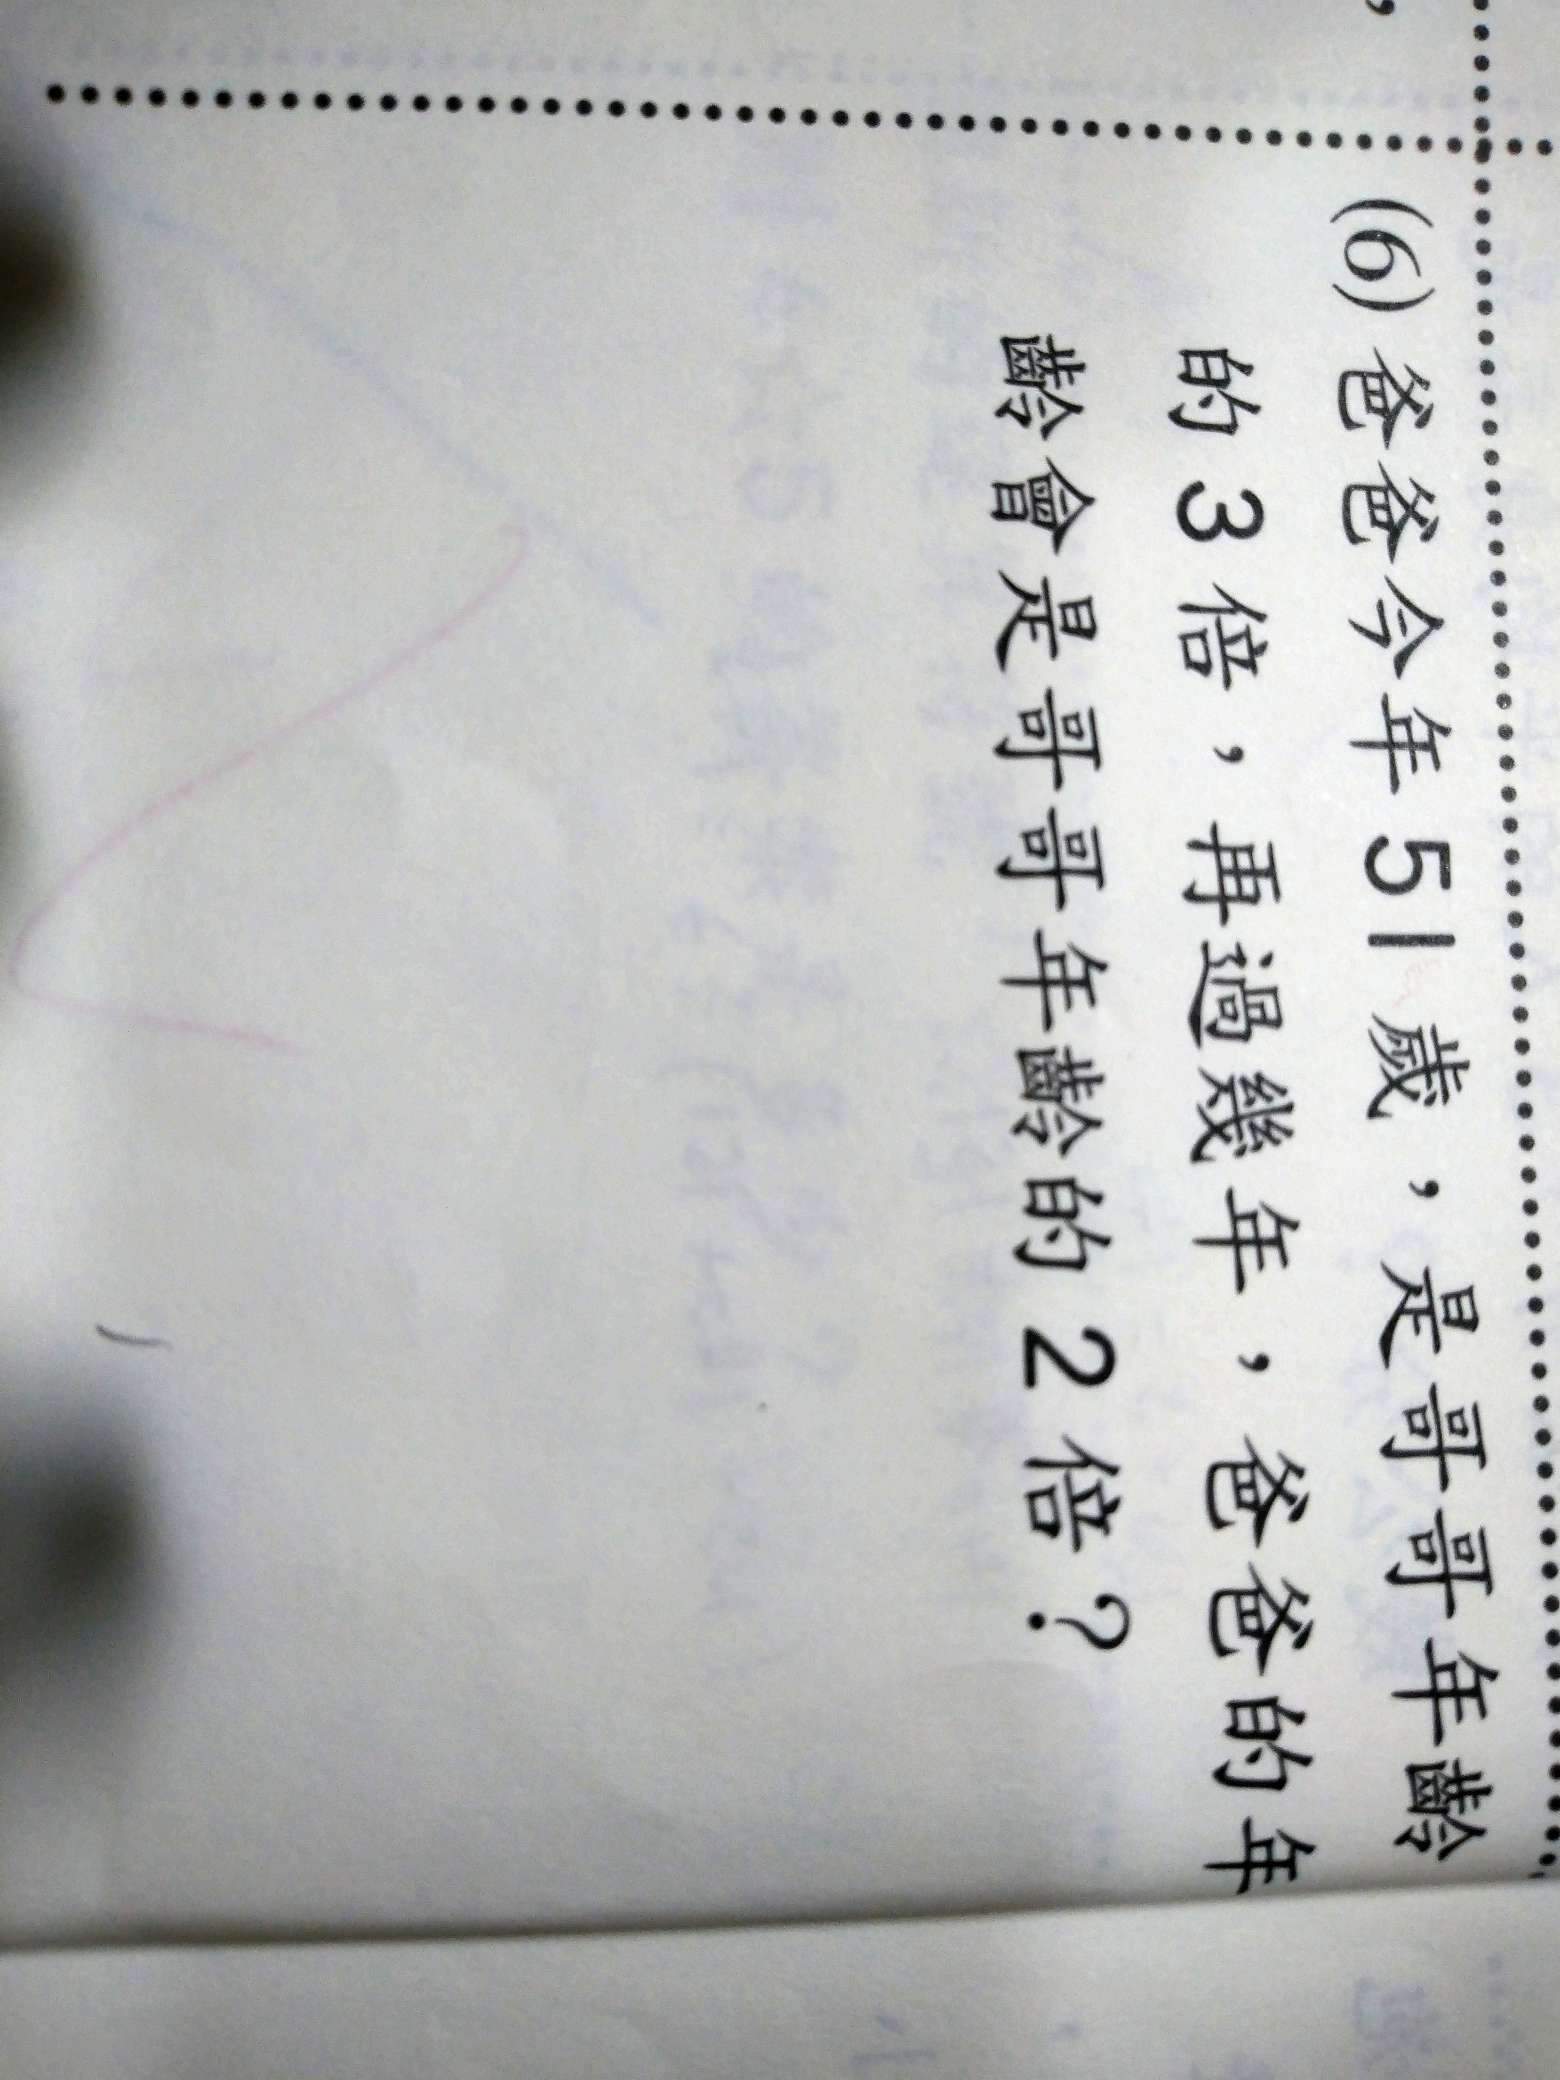 (6) 爸爸今年51歲，是哥哥年齡
的3倍，再過幾年，爸爸的年
齡會是哥哥年齡的2倍？